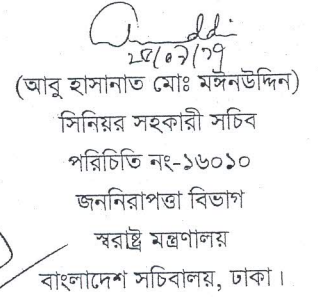 (আবু হাসানাত মোঃ মঈনউদ্দিন)
সিনিয়র সহকারী সচিব
পরিচিতি নং-১৬০১০
জননিরাপত্তা বিভাগ
স্বরাষ্ট্র মন্ত্রণালয়
বাংলাদেশ সচিবালয়, ঢাকা।